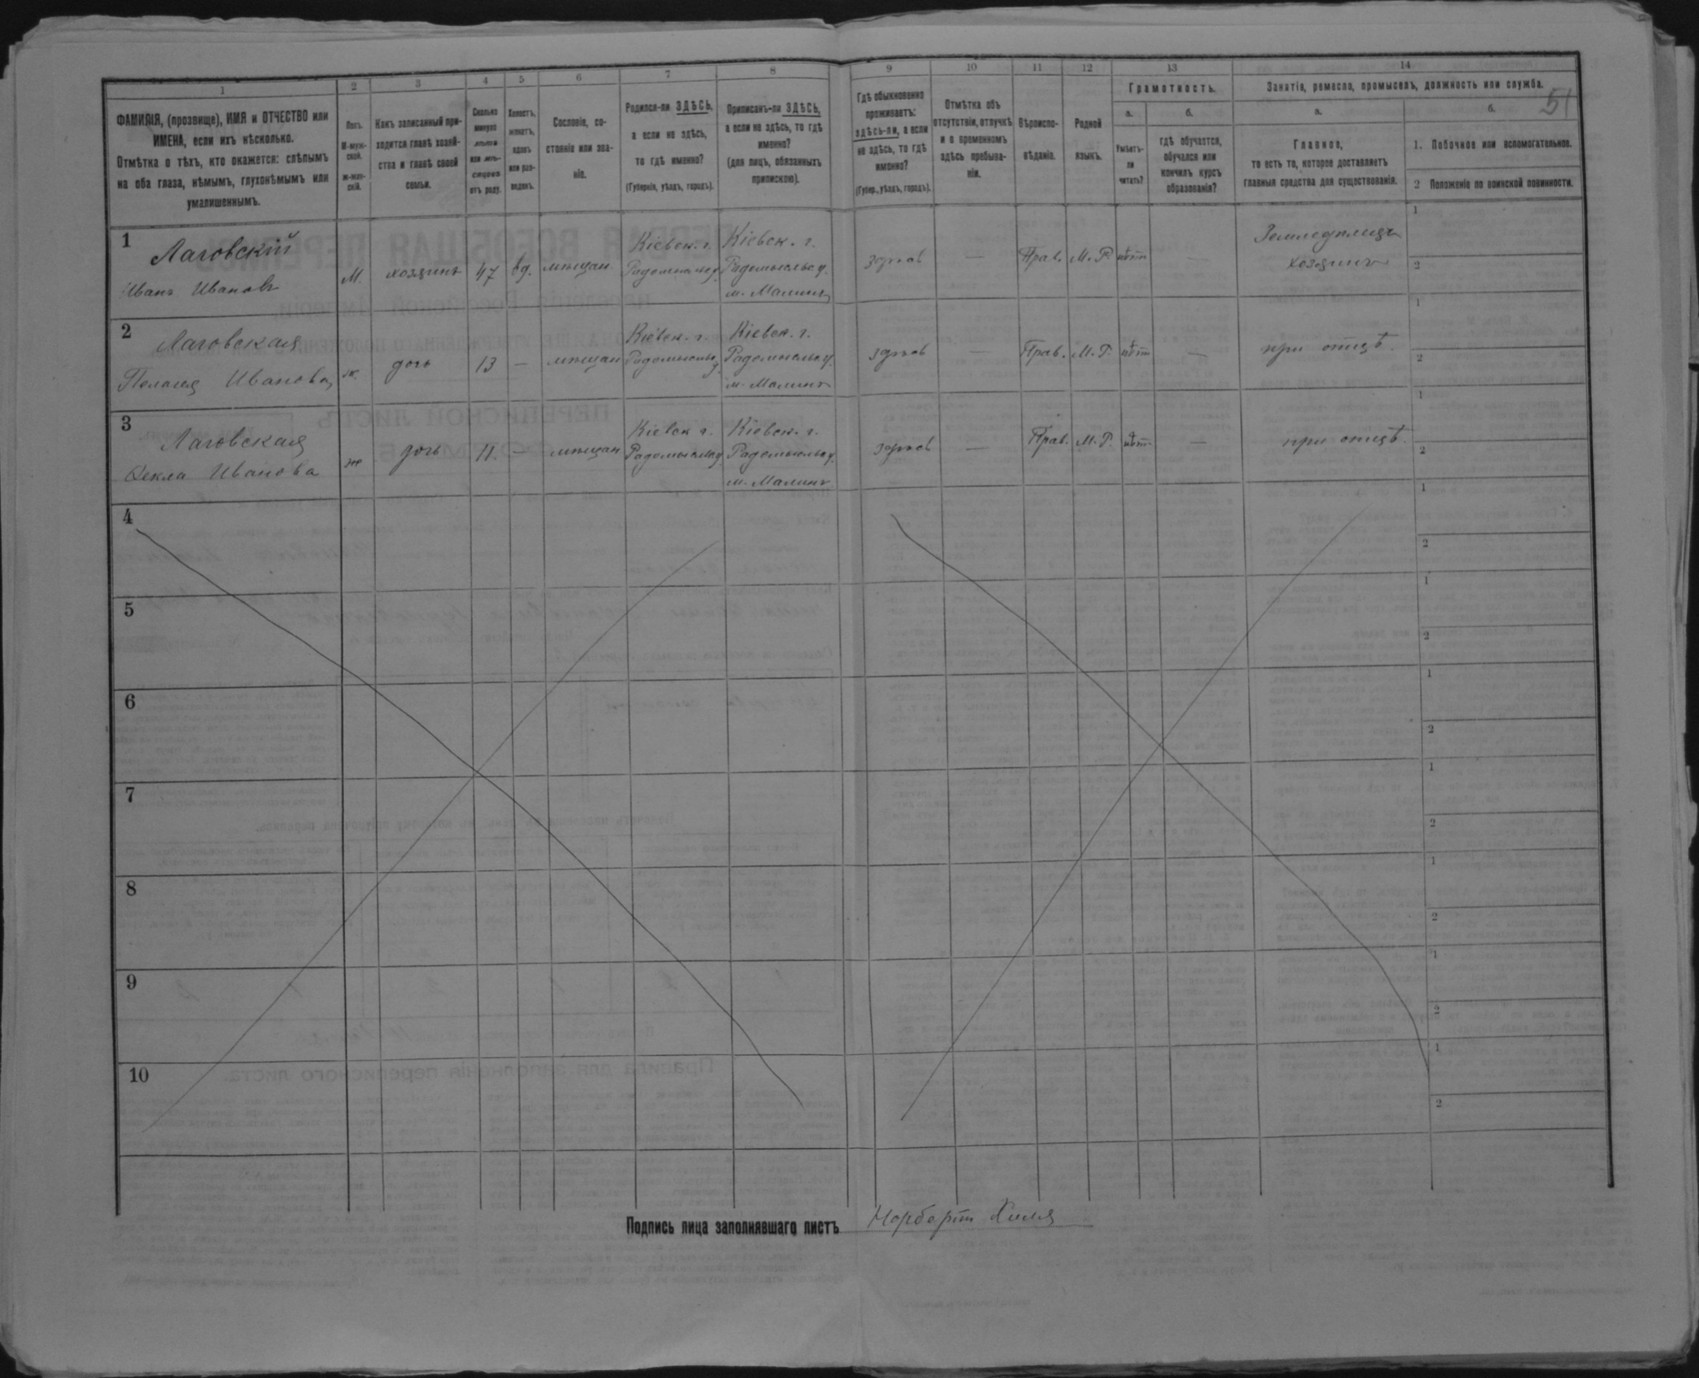 51
1 2 3 4 5 6 7 8 9 10 11 12 13 14
ФАМИЛІЯ, (прозвище), ИМЯ и ОТЧЕСТВО или
ИМЕНА, если ихъ нѣсколько.
Отмѣтка о тѣхъ, кто окажется: слѣпымъ
на оба глаза, нѣмымъ, глухонѣмымъ или
умалишеннымъ.
Полъ.
М-муж-
ской.
ж-жен-
скій.
Какъ записанный при-
ходится главѣ хозяй-
ства и главѣ своей
семьи.
Сколько
минуло
лѣтъ
или мѣ-
сяцевъ
отъ роду.
Холостъ,
женатъ,
вдовъ
или раз-
веденъ.
Сословіе, со-
стояніе или зва-
ніе.
Родился-ли ЗДѢСЬ,
а если не здѣсь,
то гдѣ именно?
(Губернія, уѣздъ, городъ).
Приписанъ-ли ЗДѢСЬ,
а если не здѣсь, то гдѣ
именно?
(для лицъ, обязанныхъ
припискою).
Гдѣ обыкновенно
проживаетъ:
здѣсь-ли, а если
не здѣсь, то гдѣ
именно?
(Губер., уѣздъ, городъ).
Отмѣтка объ
отсутствіи, отлучкѣ
и о временномъ
здѣсь пребыва-
ніи.
Вѣроиспо-
вѣданіе.
Родной
языкъ.
Грамотность.
а.
Умѣетъ-
ли
читать?
б.
гдѣ обучается,
обучался или
кончилъ курсъ
образованія?
Занятіе, ремесло, промыселъ, должность или служба.
а.
Главное,
то есть то, которое доставляетъ
главныя средства для существованія.
б.
1. Побочное или вспомогательное.
2 Положеніе по воинской повинности.
1
Лаговскій
Иванъ Ивановъ
М.
хозяинъ
47
вд.
мѣщан
Кіевск. г.
Радомысльу.
Кіевск. г.
Радомысльу.
м. Малинъ
здѣсь
—
Прав.
М. Р
нѣт
—
Земледѣлецъ
хозяинъ
1
2
2
Лаговская
Пелагея Иванова
ж.
дочь
13
—
мѣщан
Кіевск. г.
Радомысльу.
Кіевск. г.
Радомысльу.
м. Малинъ
здѣсь
—
Прав.
М. Р.
нѣт
—
при отцѣ.
1
2
3
Лаговская
Ѳекла Иванова
ж
дочь
11.
—
мѣщан
Кіевск г.
Радомысльу.
Кіевск. г.
Радомысльу.
м. Малинъ
здѣсь
—
Прав.
М. Р.
нѣт.
—
при отцѣ.
1
2
4
1
2
5
1
2
6
1
2
7
1
2
8
1
2
9
1
2
10
1
2
Подпись лица заполнявшаго листъ Норбертъ